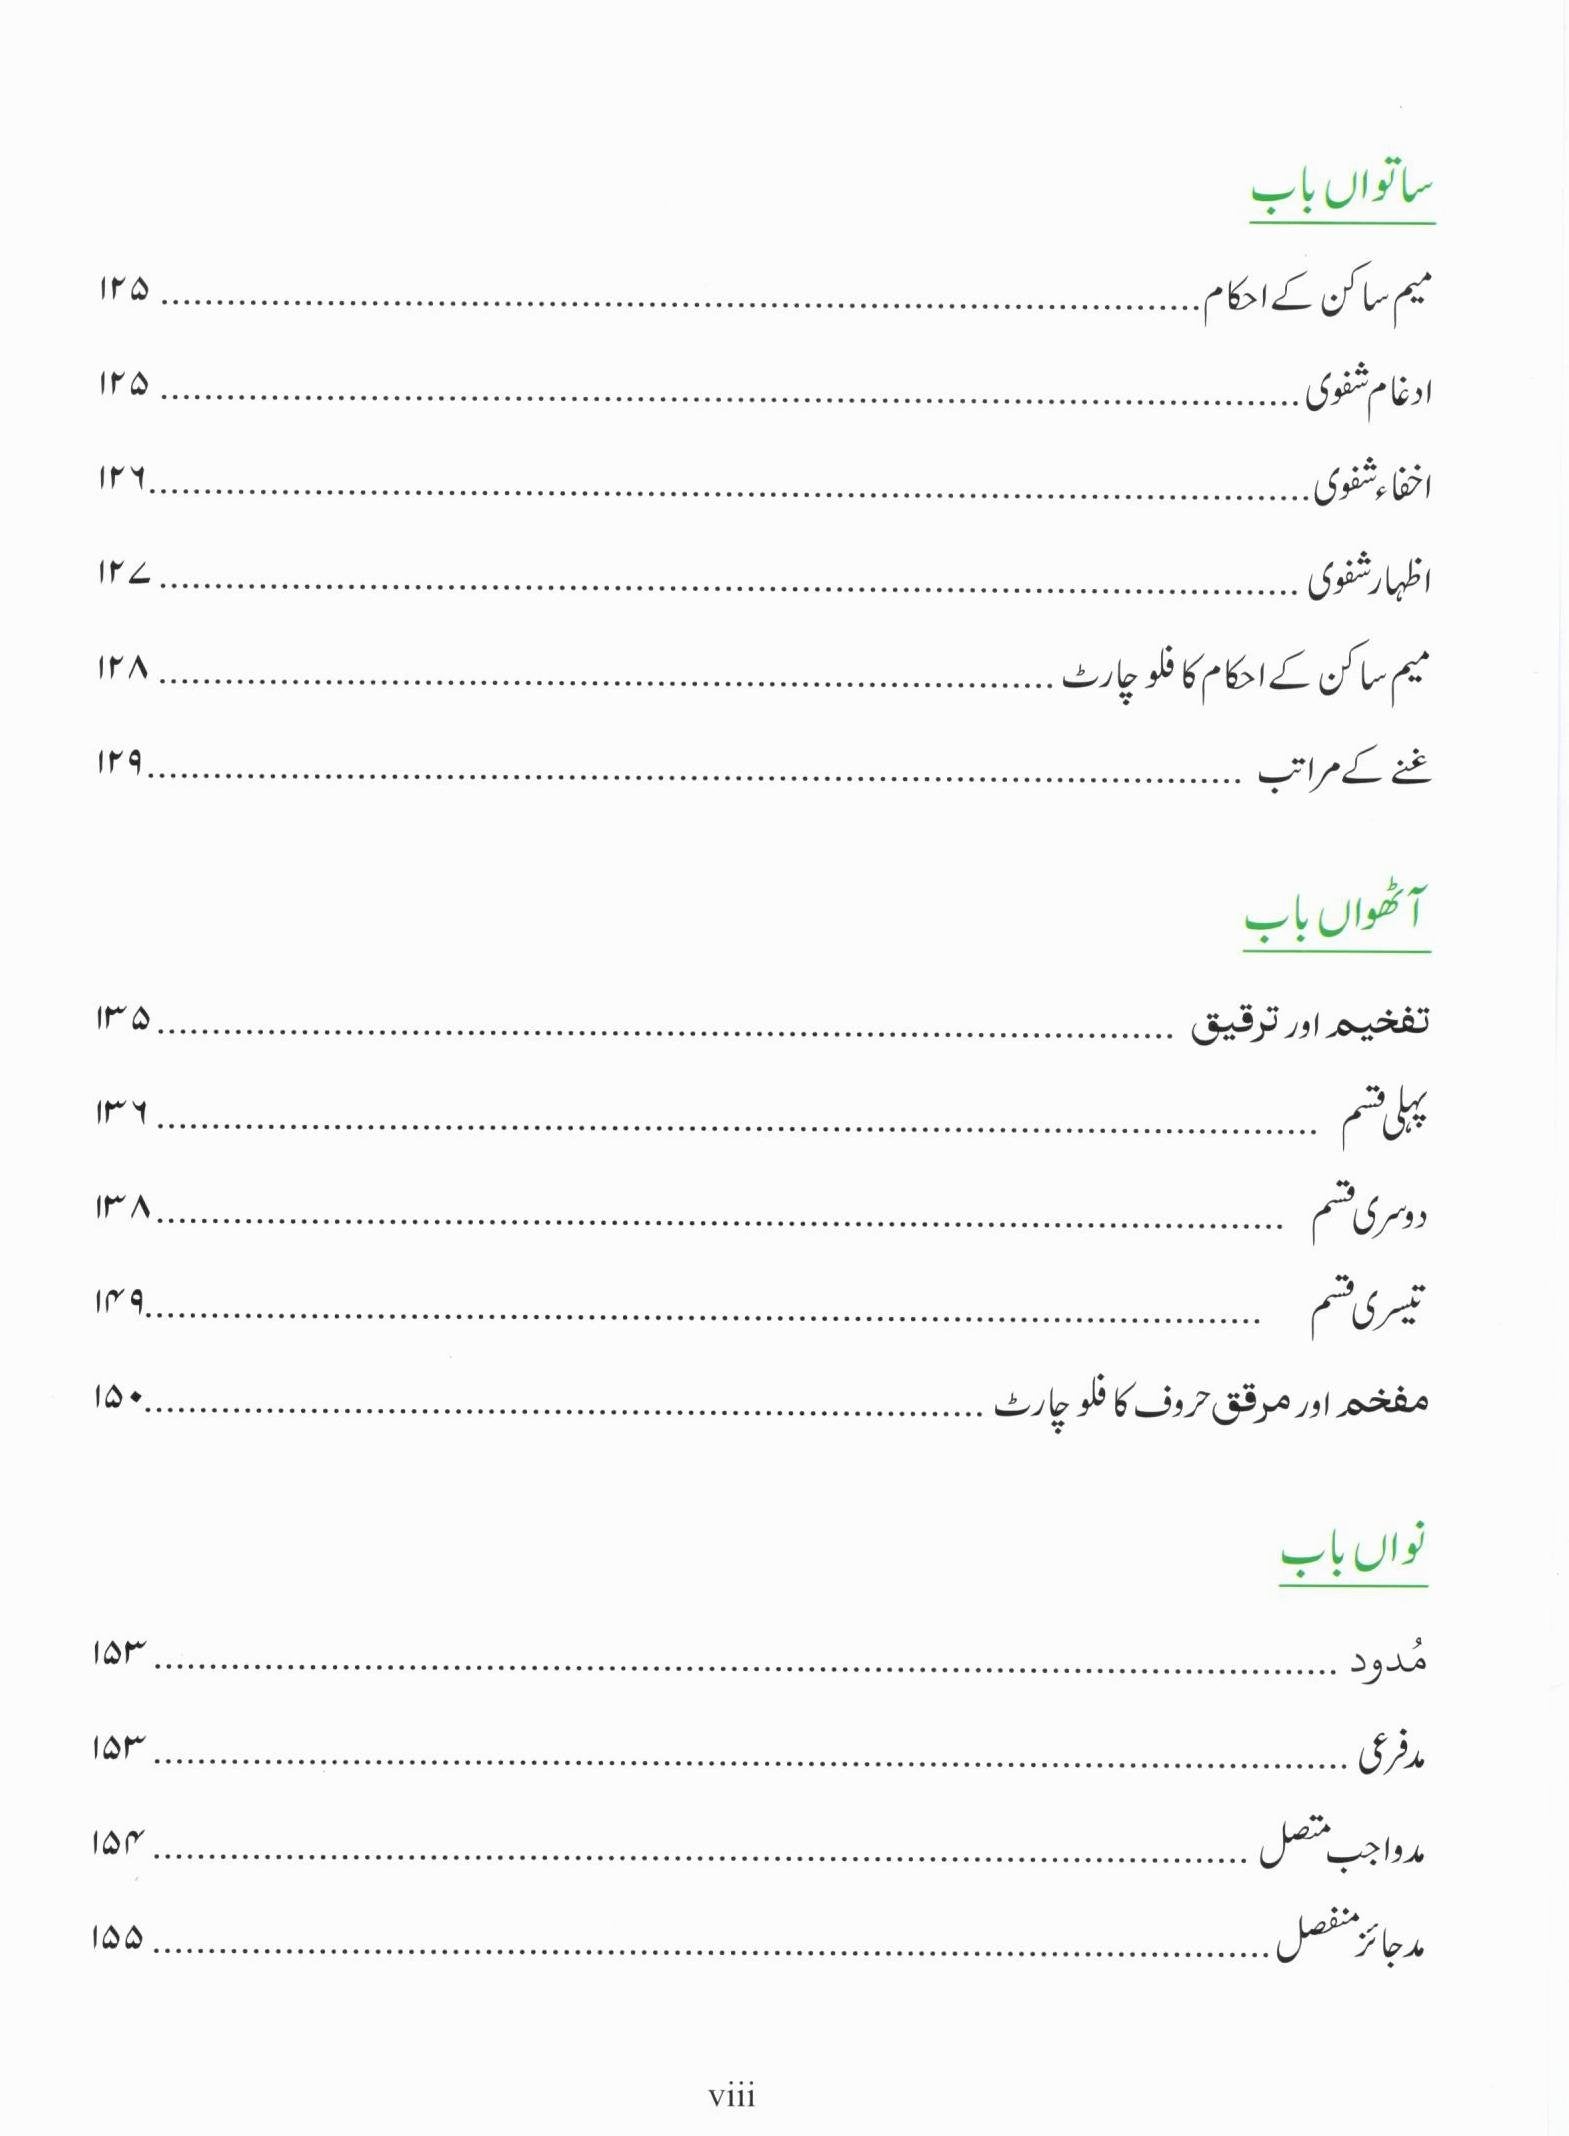 ساتواں باب
میم ساکن کے احکام ........ ۱۲۵
ادغام شفوی ........ ۱۲۵
اخفاء شفوی ........ ۱۲۶
اظہار شفوی ........ ۱۲۷
میم ساکن کے احکام کا فلو چارٹ ........ ۱۲۸
غنے کے مراتب ........ ۱۲۹
آٹھواں باب
تفخیم اور ترقیق ........ ۱۳۵
پہلی قسم ........ ۱۳۶
دوسری قسم ........ ۱۳۸
تیسری قسم ........ ۱۴۹
مفخم اور مرقق حروف کا فلو چارٹ ........ ۱۵۰
نواں باب
مُدود ........ ۱۵۳
مد فرعی ........ ۱۵۳
مد واجب متصل ........ ۱۵۴
مد جائز منفصل ........ ۱۵۵
viii